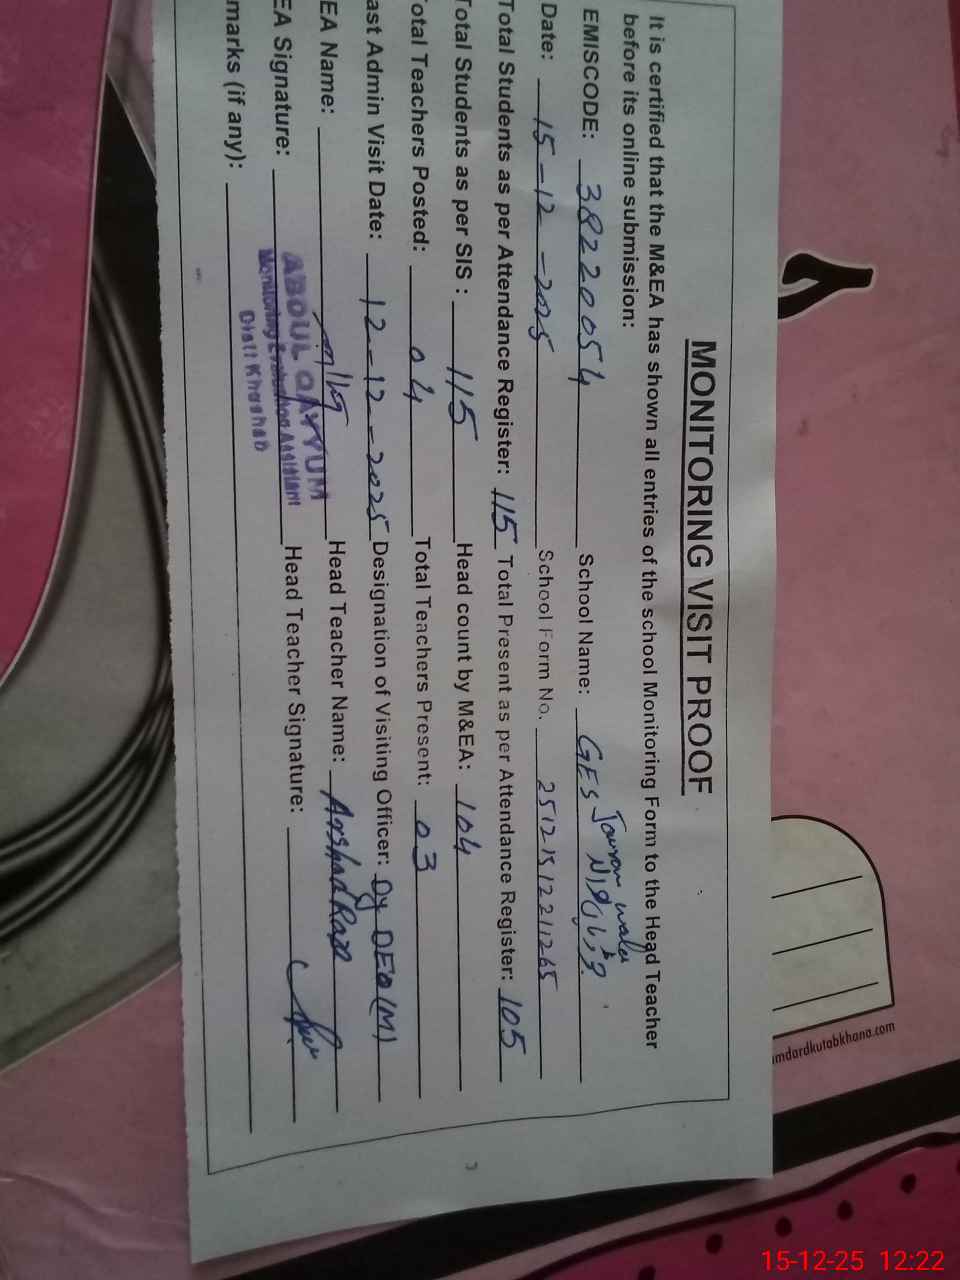 MONITORING VISIT PROOF
It is certified that the M&EA has shown all entries of the school Monitoring Form to the Head Teacher
before its online submission:
EMISCODE: 38220054 School Name: GES
Date: 15-12-2025 School Form No. 25121512211265
Total Students as per Attendance Register: 115 Total Present as per Attendance Register: 105
Total Students as per SIS : 115 Head count by M&EA: 104
otal Teachers Posted: 04 Total Teachers Present: 03
ast Admin Visit Date: 12-12-2025 Designation of Visiting Officer: Dy DEO (M)
EA Name: Head Teacher Name: Arshad Raza
EA Signature: Head Teacher Signature:
ABDUL QAYYUM
Monitoring Evaluation Assistant
Distt Khushab
marks (if any):
mdardkutabkhana.com
15-12-25 12:22